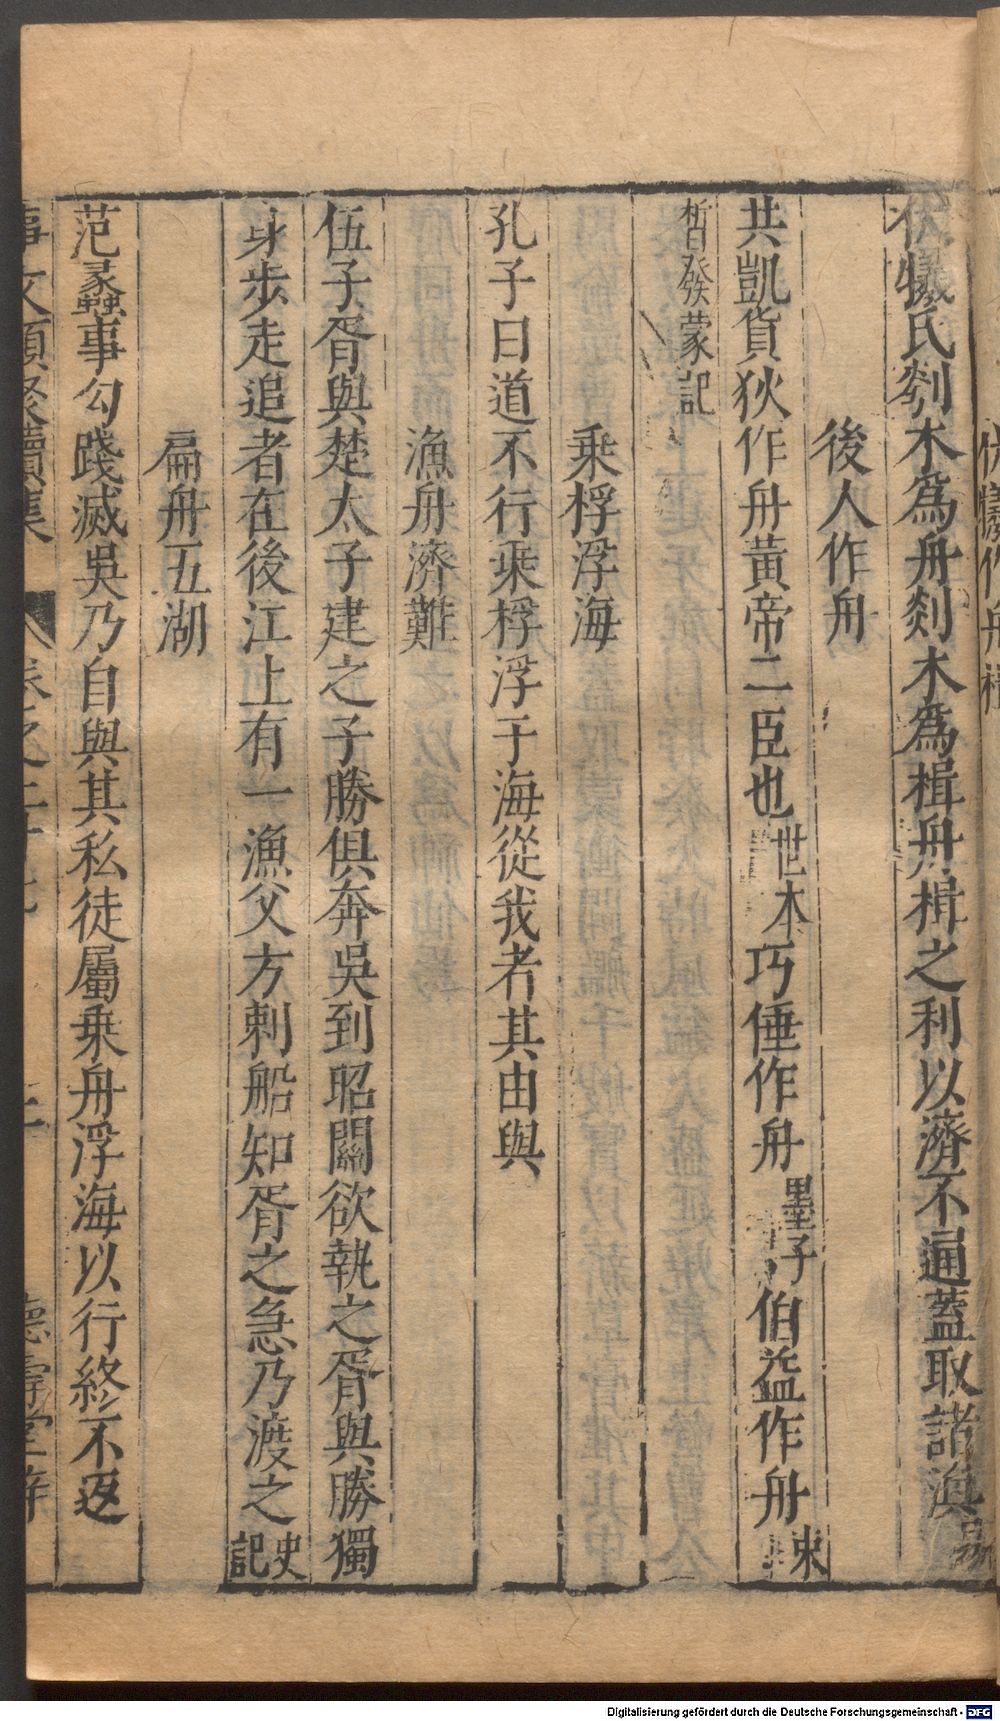 伏犧作舟楫
伏犧氏刳木爲舟剡木爲楫舟楫之利以濟不通蓋取諸渙易
後人作舟
共凱貨狄作舟黃帝二臣也世本巧倕作舟墨子伯益作舟束
晳發蒙記
乘桴浮海
孔子曰道不行乘桴浮于海從我者其由與
漁舟濟難
伍子胥與楚太子建之子勝俱奔吳到昭關欲執之胥與勝獨
身步走追者在後江上有一漁父方刺船知胥之急乃渡之史記
扁舟五湖
范蠡事勾踐滅吳乃自與其私徒屬乘舟浮海以行終不返
事文類聚續集
德壽堂梓
Digitalisierung gefördert durch die Deutsche Forschungsgemeinschaft - DFG